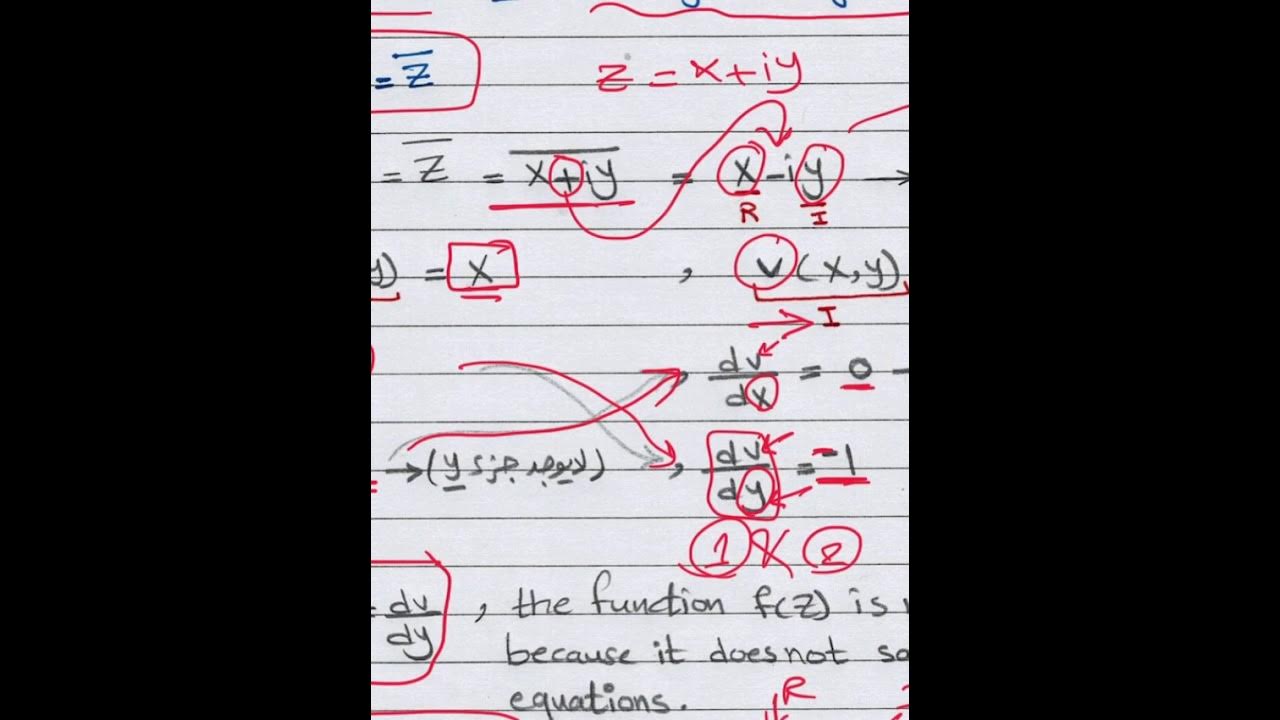 = z̅
z = x+iy
= z̅ = \overline{x+iy} = x-iy →
R I
y) = x , v(x,y)
I
, dv/dx = 0 -
→(لا يوجد جزء y) , dv/dy = -1
1 X 2
= dv/dy , the function f(z) is
because it does not
equations.
R